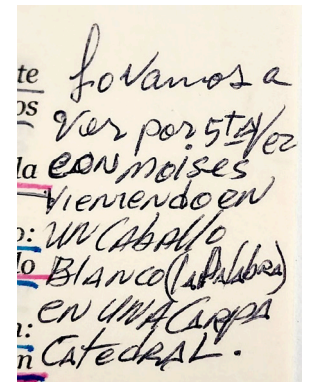 te lo vamos a
os ver por 5ta vez
la con moises
vieniendo en
o: UN CABAllO
lo BlANCO (lA PAlAbRA)
EN UNA CARPA
n: CATEdRAL.